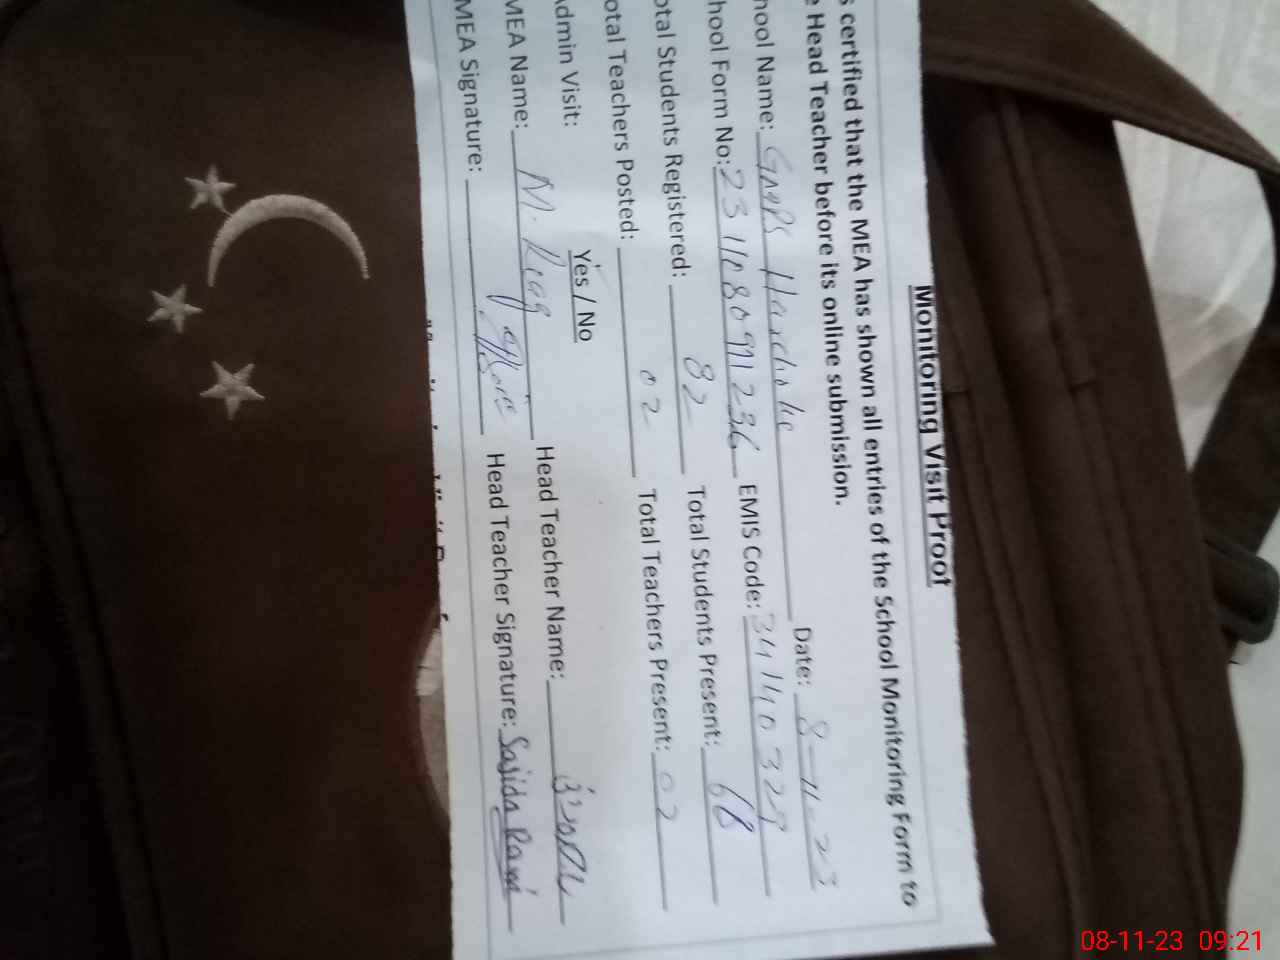 Monitoring Visit Proof
s certified that the MEA has shown all entries of the School Monitoring Form to
e Head Teacher before its online submission.
hool Name: GMPS Date: 8-11-23
hool Form No: EMIS Code: 34140329
otal Students Registered: 82 Total Students Present: 68
otal Teachers Posted: 02 Total Teachers Present: 02
Admin Visit: Yes / No
MEA Name: M. Head Teacher Name:
MEA Signature: Head Teacher Signature: Sajida Rani
08-11-23 09:21